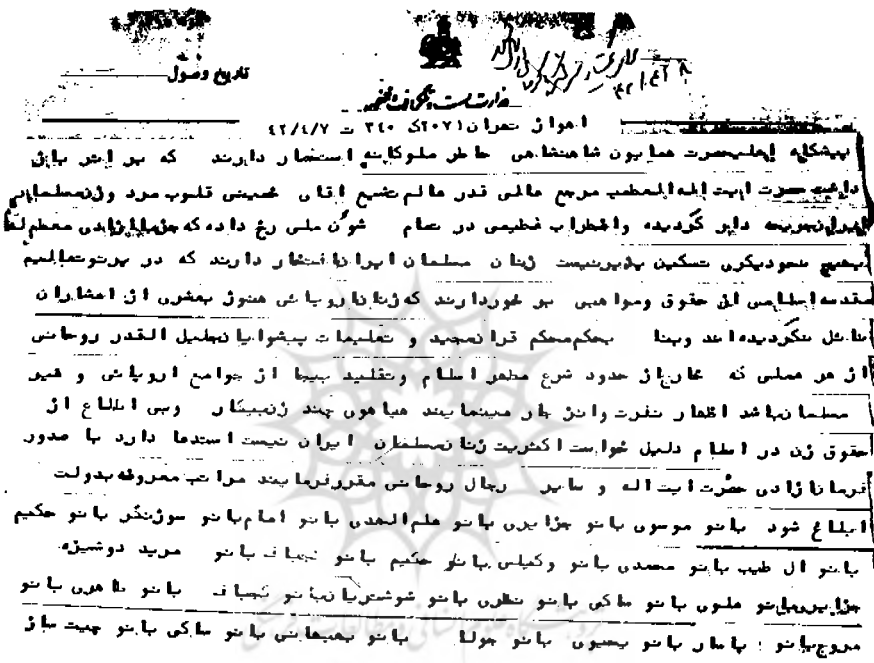 تاریخ وصول
وزارت پست و تلگراف و تلفن
اهواز تهران ۲۰۷۱ک ۳۴۰ ت ۴۲/۴/۷
پیشگاه اعلیحضرت همایون شاهنشاهی خاطر ملوکانه استحضار دارند که بر اثر باز
داشت حضرت ایت اله العظمی مرجع عالی قدر عالم تشیع اقای خمینی قلوب مرد وزن مسلمان
ایران جریحه دار گردیده واضطراب عظیمی در تمام شوٴن ملی رخ داده که جز با ازادی معظم له
بهیچ نحو دیگری تسکین پذیر نیست زنان مسلمان ایران افتخار دارند که در پرتو تعالیم
مقدسه اسلامی از حقوق ومواهبی بر خوردارند که زنان اروپائی هنوز بعشری از اعشاران
نائل نگردیده اند وبنا بحکم محکم قران مجید و تعلیمات پیشوایان جلیل القدر روحانی
از هر عملی که خارج از حدود شرع مطهر اسلام وتقلید بیجا از جوامع اروپائی و غیر
مسلمان باشد اظهار نفرت وانز جار مینمایند هیاهوی چند زن بیکار وبی اطلاع از
حقوق زن در اسلام دلیل خواست اکثریت زنان مسلمان ایران نیست استدعا دارد با صدور
فرمان ازادی حضرت ایت اله و سایر رجال روحانی مقرر فرمایند مراتب معروضه بدولت
ابلاغ شود بانو موسوی بانو جزایری بانو علم الهدی بانو امام بانو سوزنگر بانو حکیم
بانو ال طیب بانو محمدی بانو وکیلی بانو حکیم بانو نجباف بانو مرید دوشیزه
جزایری بانو علوی بانو ساکی بانو نظری بانو شوشتریان بانو نجباف بانو طاهری بانو
مروج بانو پامار بانو یحیوی بانو جولا بانو بهبهانی بانو ساکی بانو چیت ساز
پژوهشگاه علوم انسانی و مطالعات فرهنگی